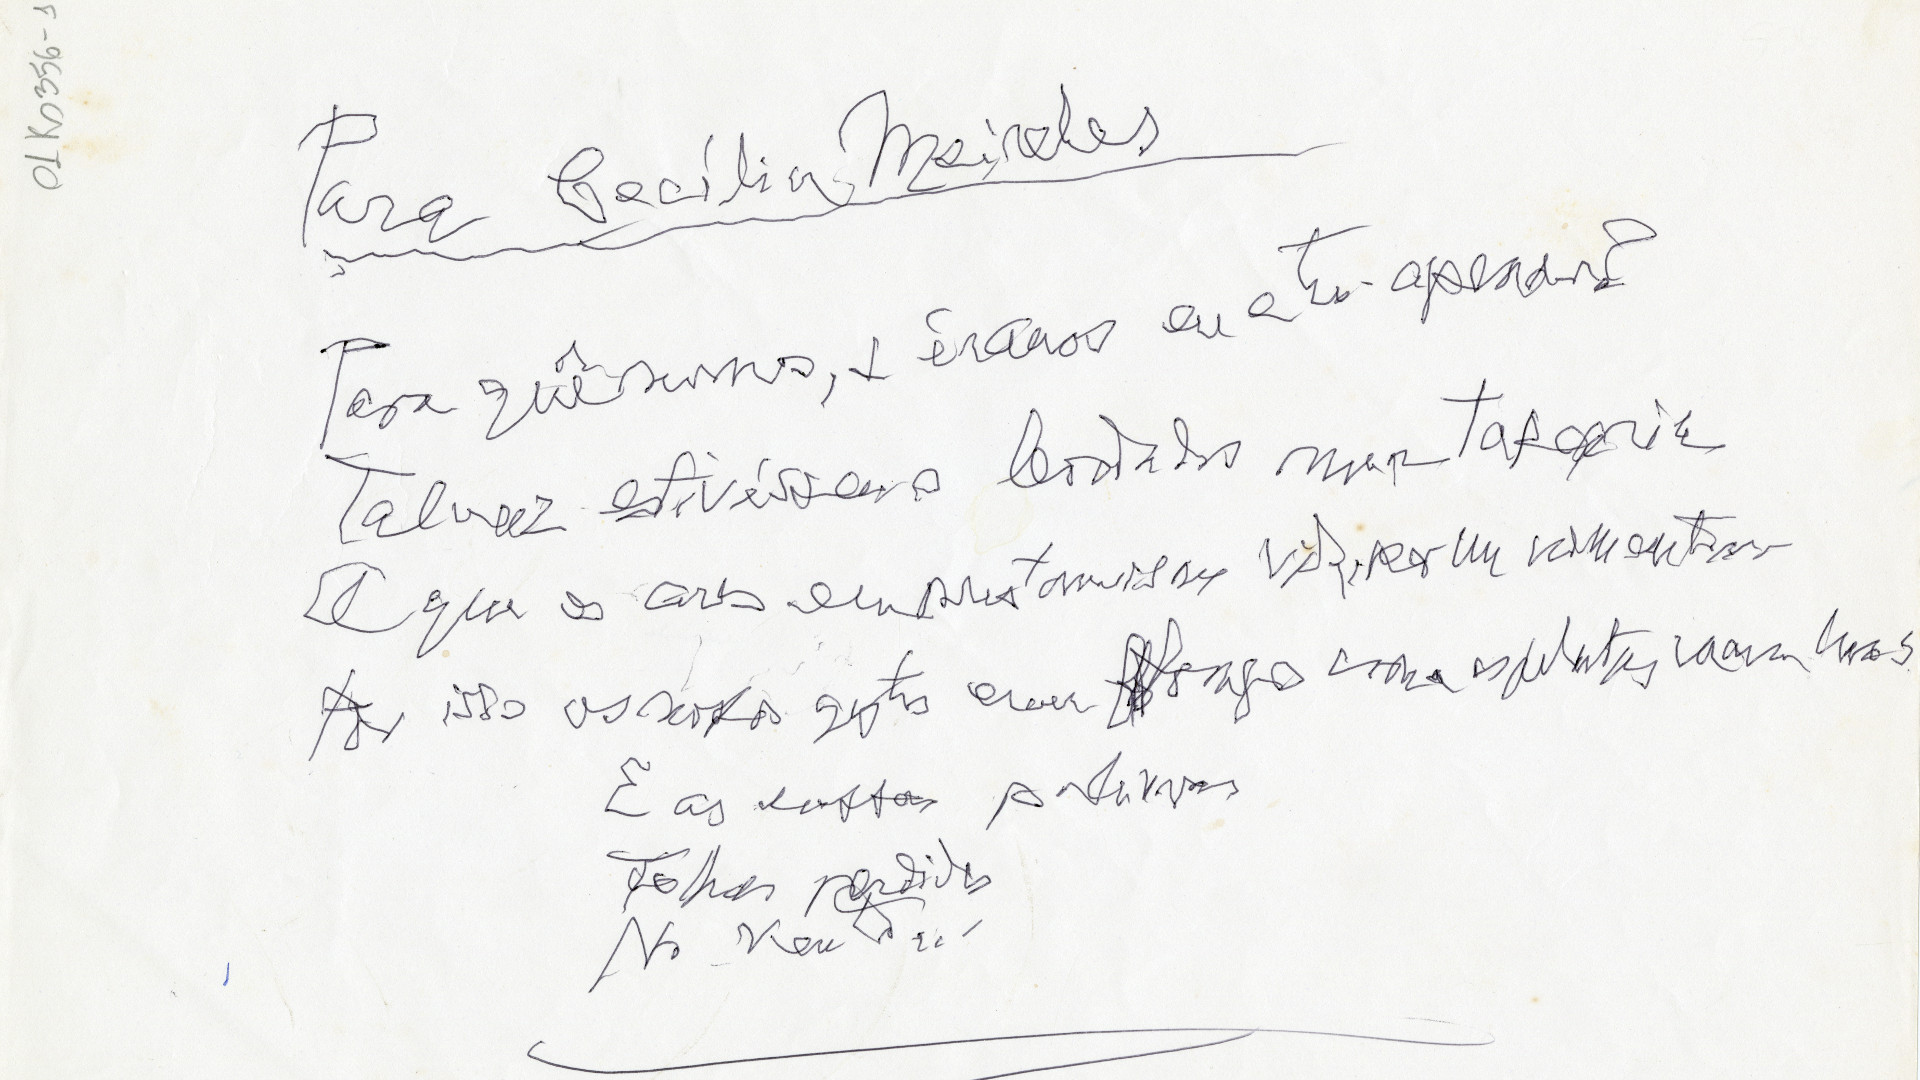 OLK0356-1
Para Cecília Meireles
Para quê nomes, éramos eu e tu apenas?
Talvez estivéssemos bordados numa tapeçaria
E que os ares
Por isso os nossos gestos eram longos como as plantas marinhas
E as nossas palavras
Folhas perdidas
No vento...